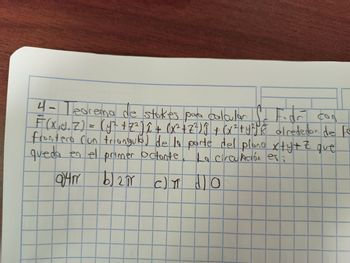 4- Teorema de stokes para calcular ∫c F·dr con
F(x,y,z) = (y²+z²)î + (x²+z²)ĵ + (x²+y²)k̂ alrededor de la
frontera (un triangulo) de la parte del plano x+y+z que
queda en el primer octante. La circulación es:
a)4π b) 2π c) π d) 0